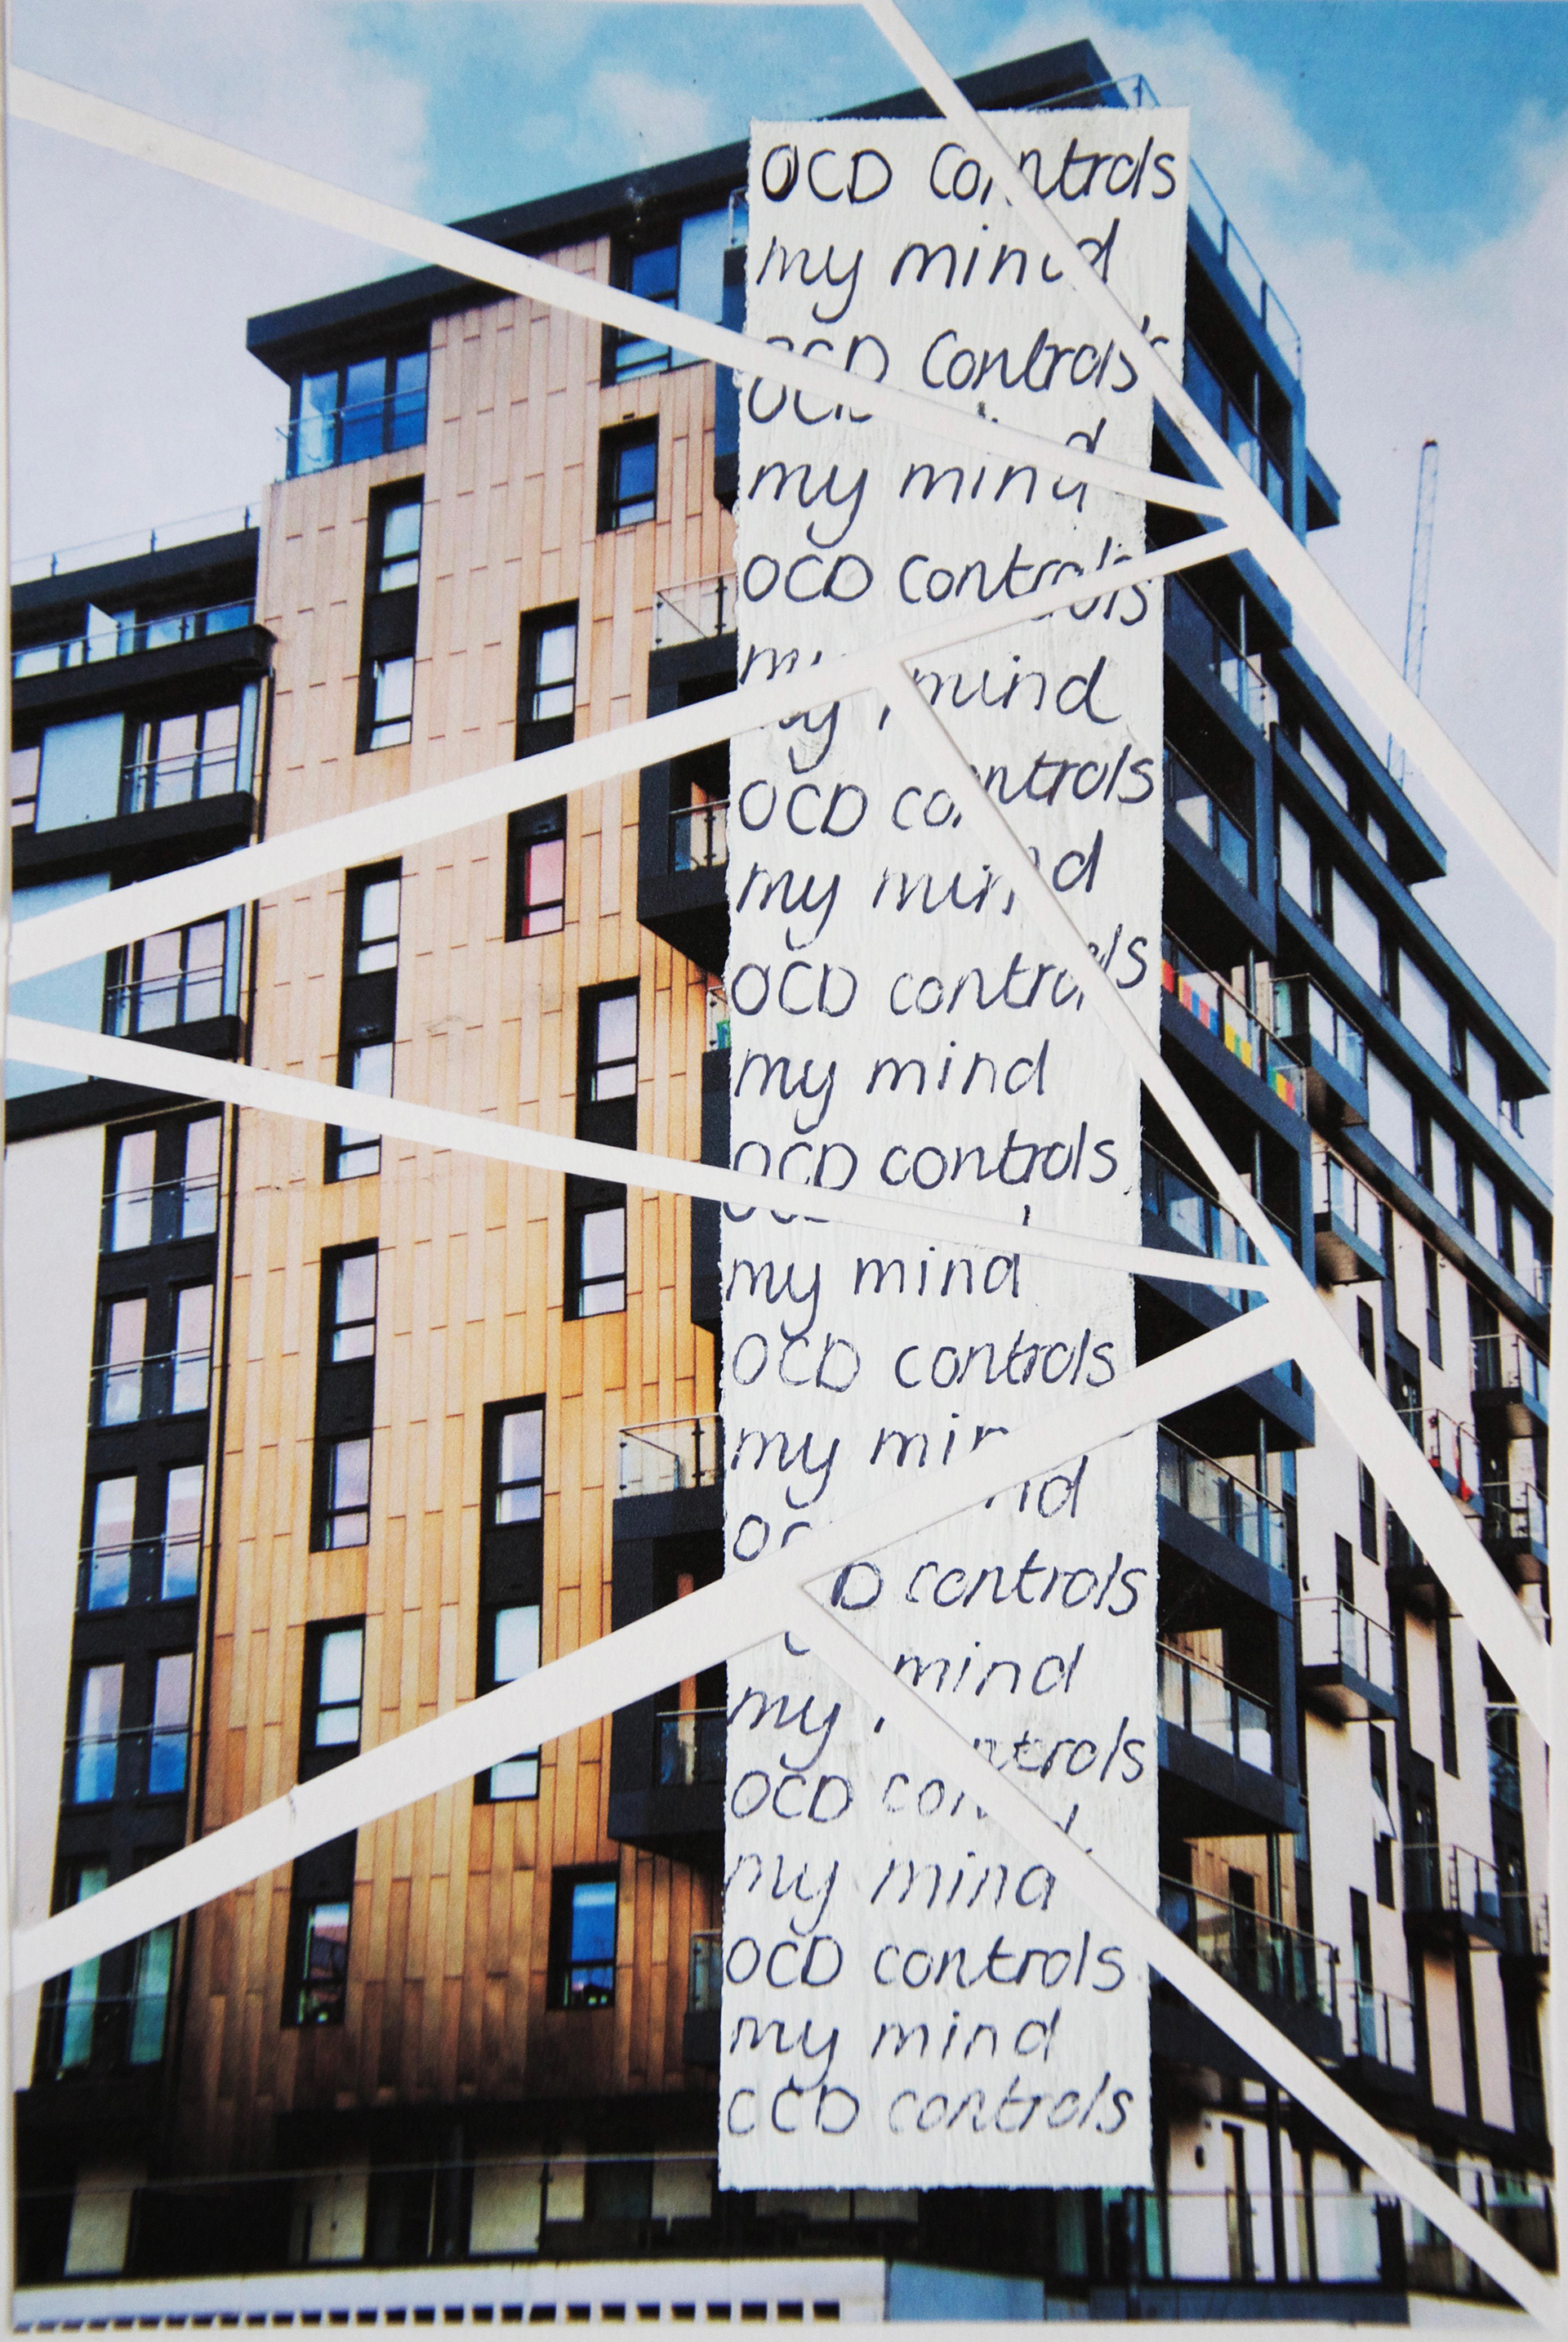 OCD controls
my mind
OCD controls
my mind
OCD controls
my mind
OCD controls
my mind
OCD controls
my mind
OCD controls
my mind
OCD controls
my mind
OCD controls
my mind
OCD controls
my mind
OCD controls
my mind
OCD controls